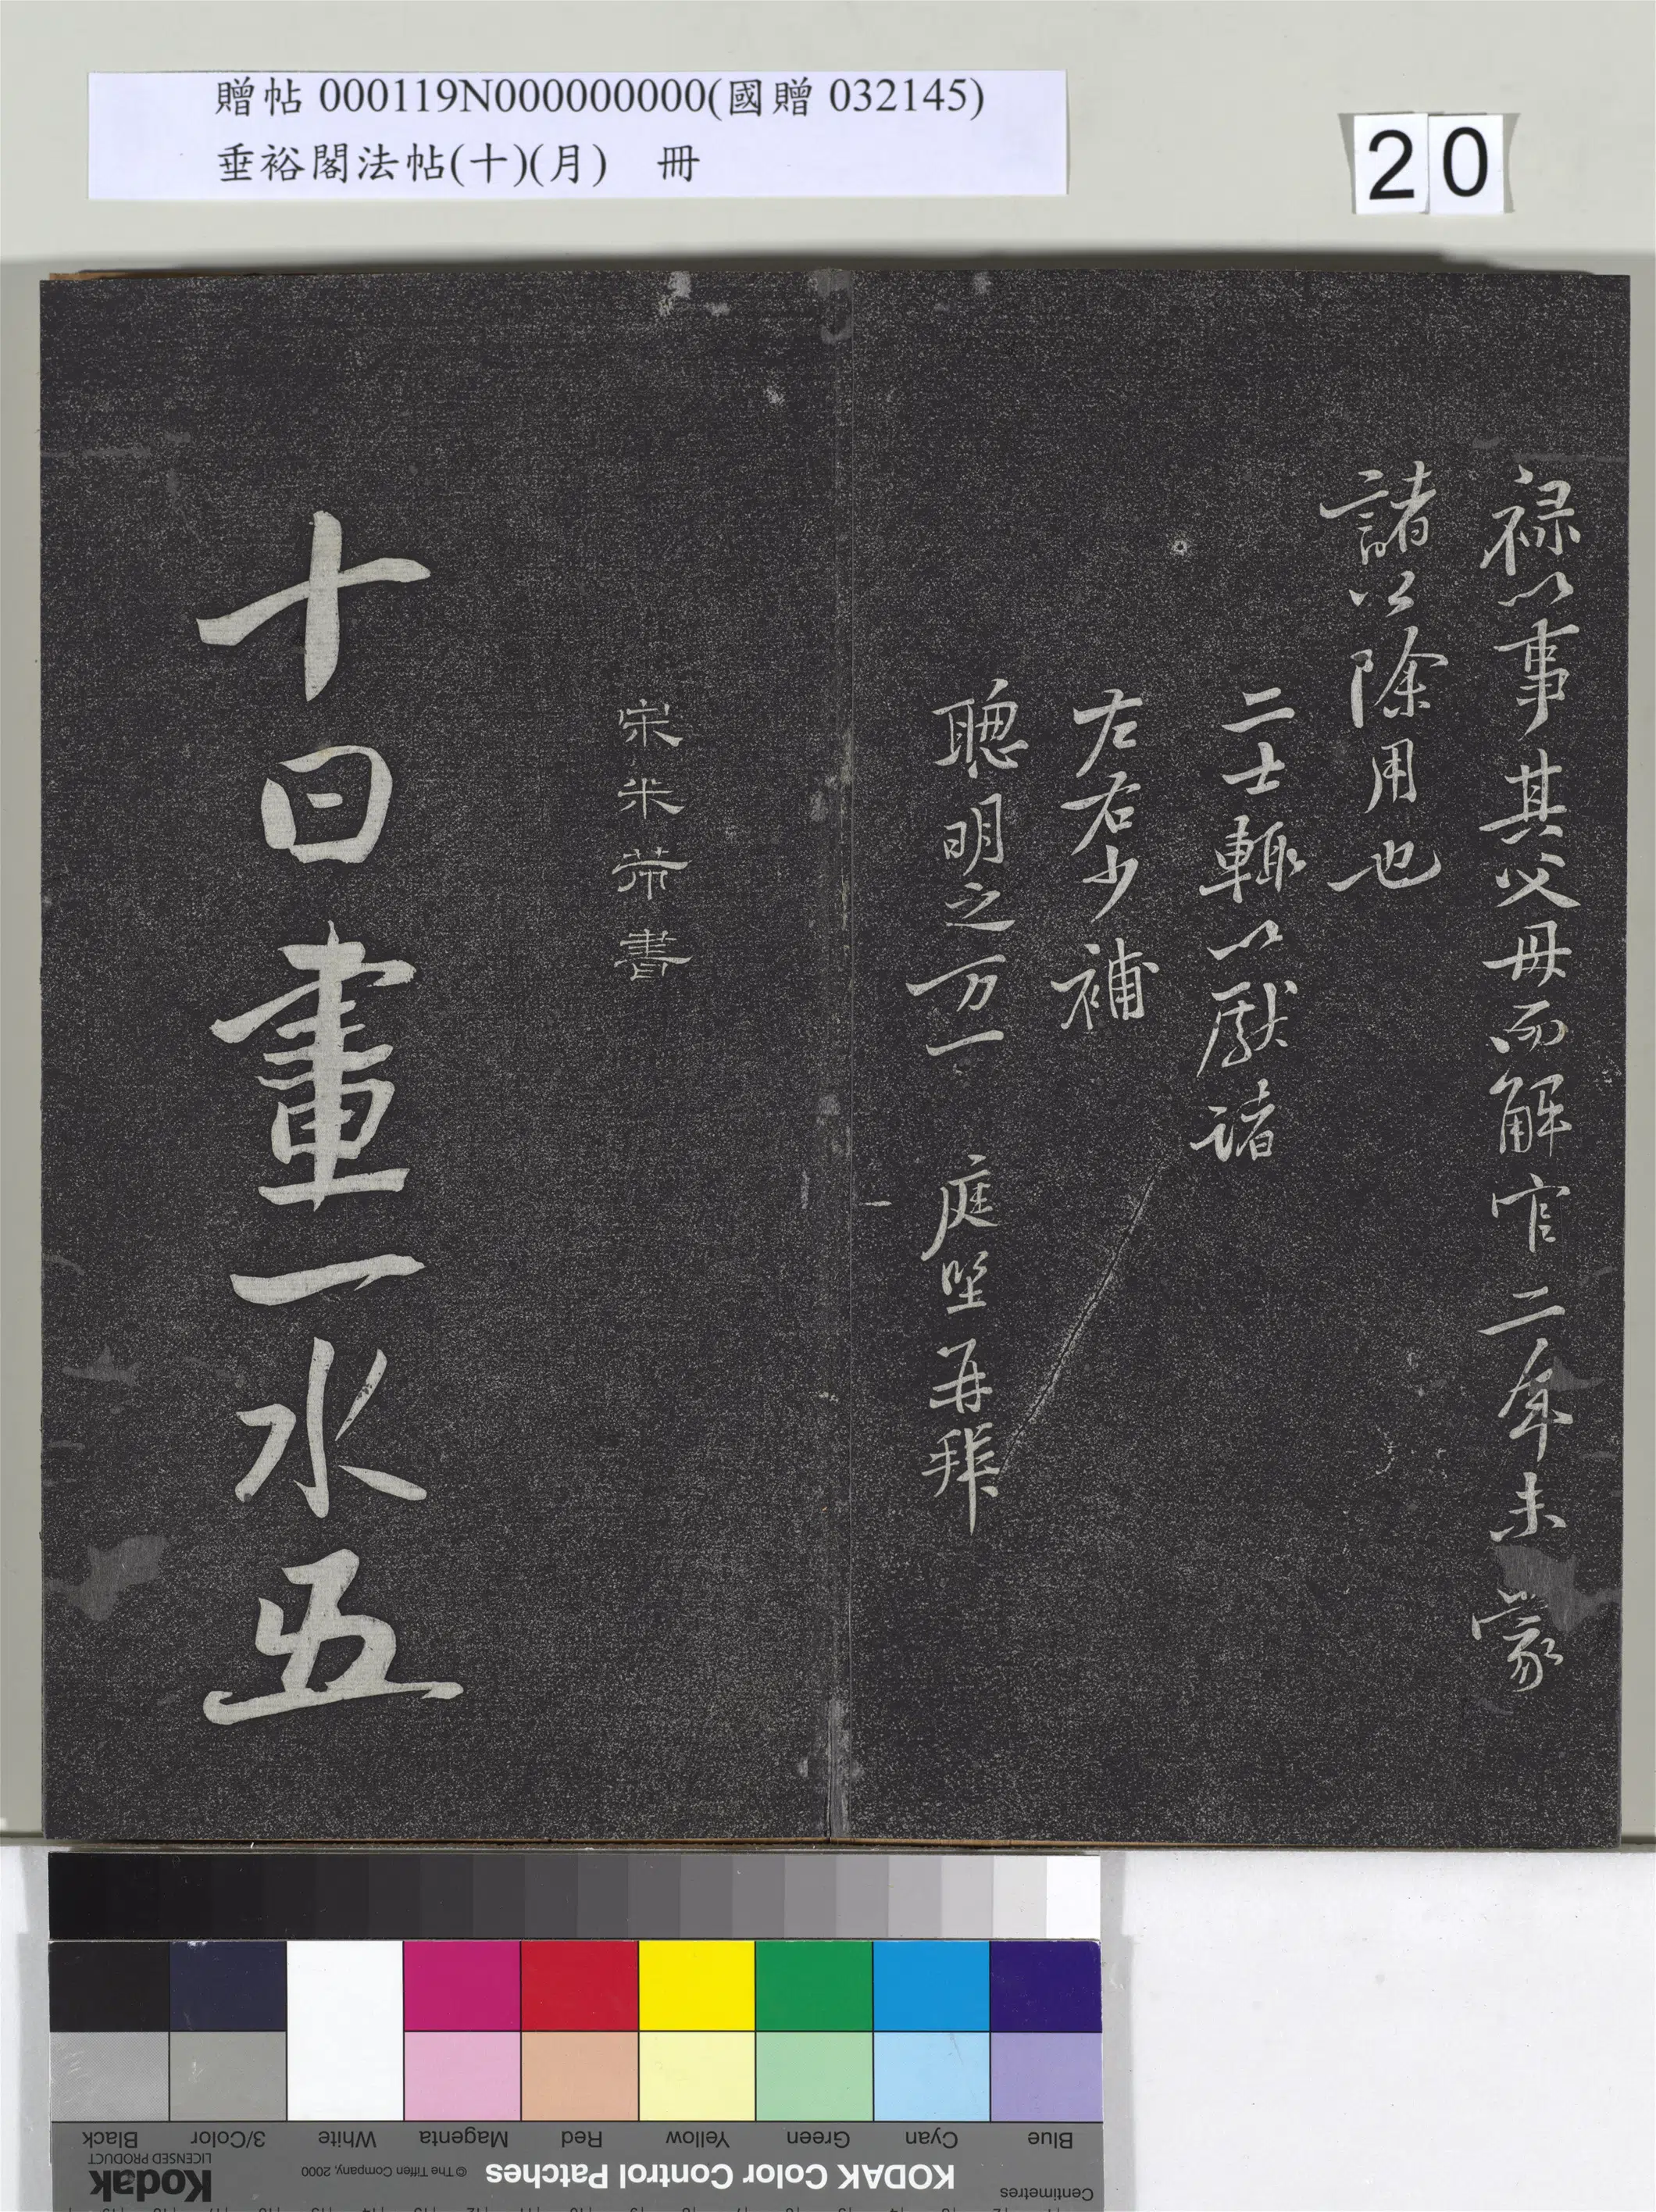 贈帖 000119N000000000(國贈 032145)
垂裕閣法帖(十)(月) 冊
20
祿以事其父母而解官二年未蒙
諸公除用也
二士輒以獻諸
左右少補
聰明之万一 庭堅再拜
宋米芾書
十日畫一水五
Black
3/Color
White
Magenta
Red
Yellow
Green
Cyan
Blue
Kodak
LICENSED PRODUCT
© The Tiffen Company, 2000
KODAK Color Control Patches
Centimetres